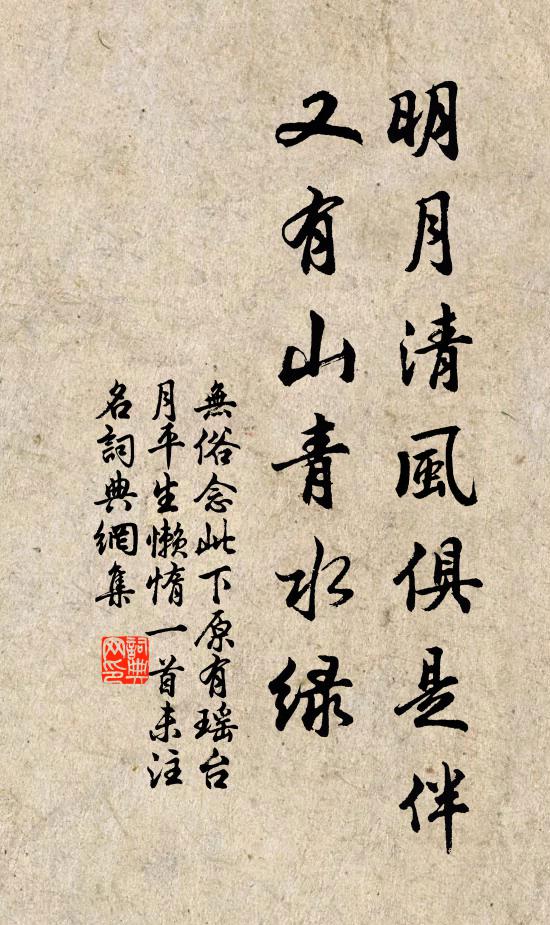 明月清風俱是伴
又有山青水绿
無俗念此下原有瑶台
月平生懒惰一首未注
名詞典網集
詞典
网印